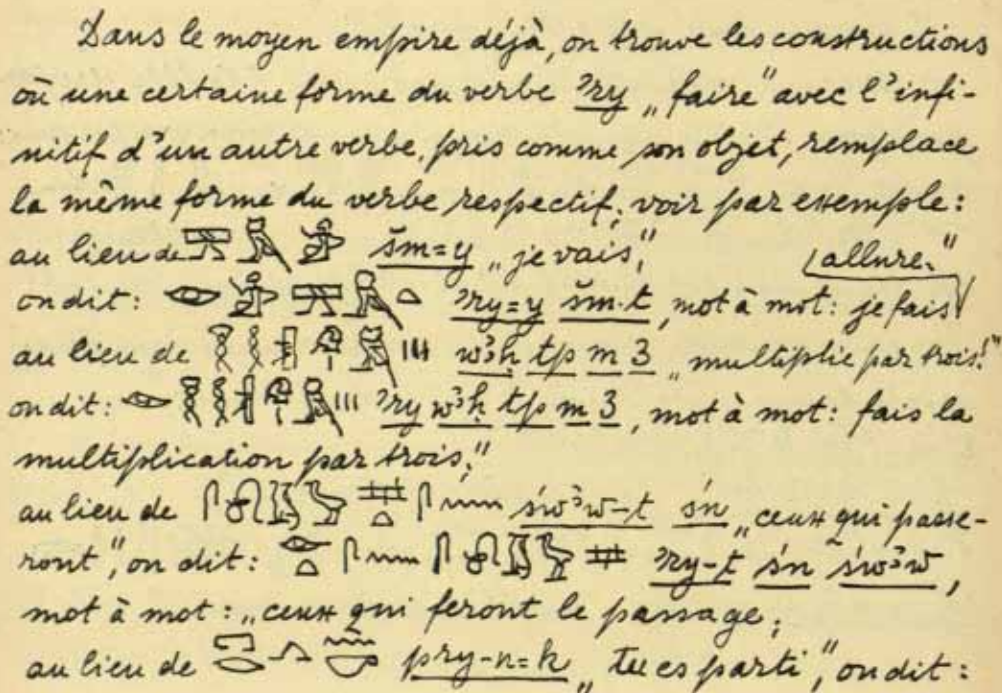 Dans le moyen empire déjà, on trouve les constructions
où une certaine forme du verbe ꜣry „faire" avec l'infi-
nitif d'un autre verbe, pris comme son objet, remplace
la même forme du verbe respectif; voir par exemple:
au lieu de šm=y „je vais", allure."
on dit: ꜣry=y šm-t, mot à mot: je fais
au lieu de wꜣḥ tp m 3 „multiplie par trois!"
on dit: ꜣry wꜣḥ tp m 3, mot à mot: fais la
multiplication par trois,"
au lieu de śwꜣw-t śn „ceux qui passe-
ront", on dit: ꜣry-t śn śwꜣw,
mot à mot: „ceux qui feront le passage;
au lieu de pry-n=k „tu es parti", on dit: